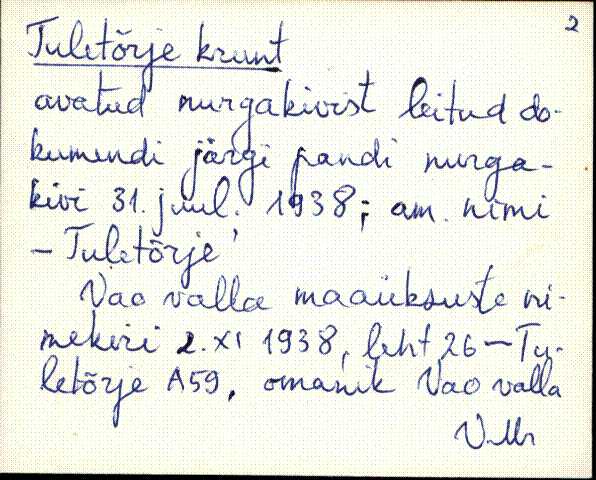 2
Tuletõrje krunt
avatud nurgakivist leitud do-
kumendi järgi pandi nurga-
kivi 31. juul. 1938; am. nimi
– Tuletõrje'
Vao valla maaüksuste ni-
mekiri 2. XI 1938, leht 26 – Tu-
letõrje A59, omanik Vao valla
V.Mr